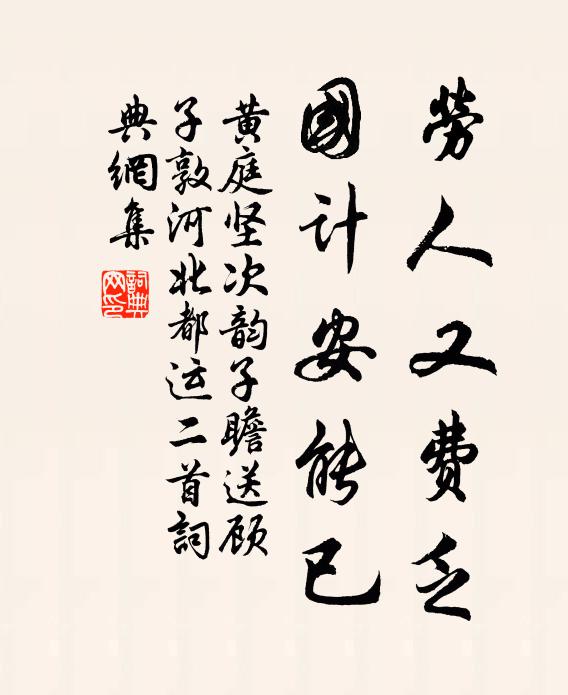 勞人又費乏
國计安能已
黄庭坚次韵子瞻送顾
子敦河北都运二首詞
典網集
詞典
网印